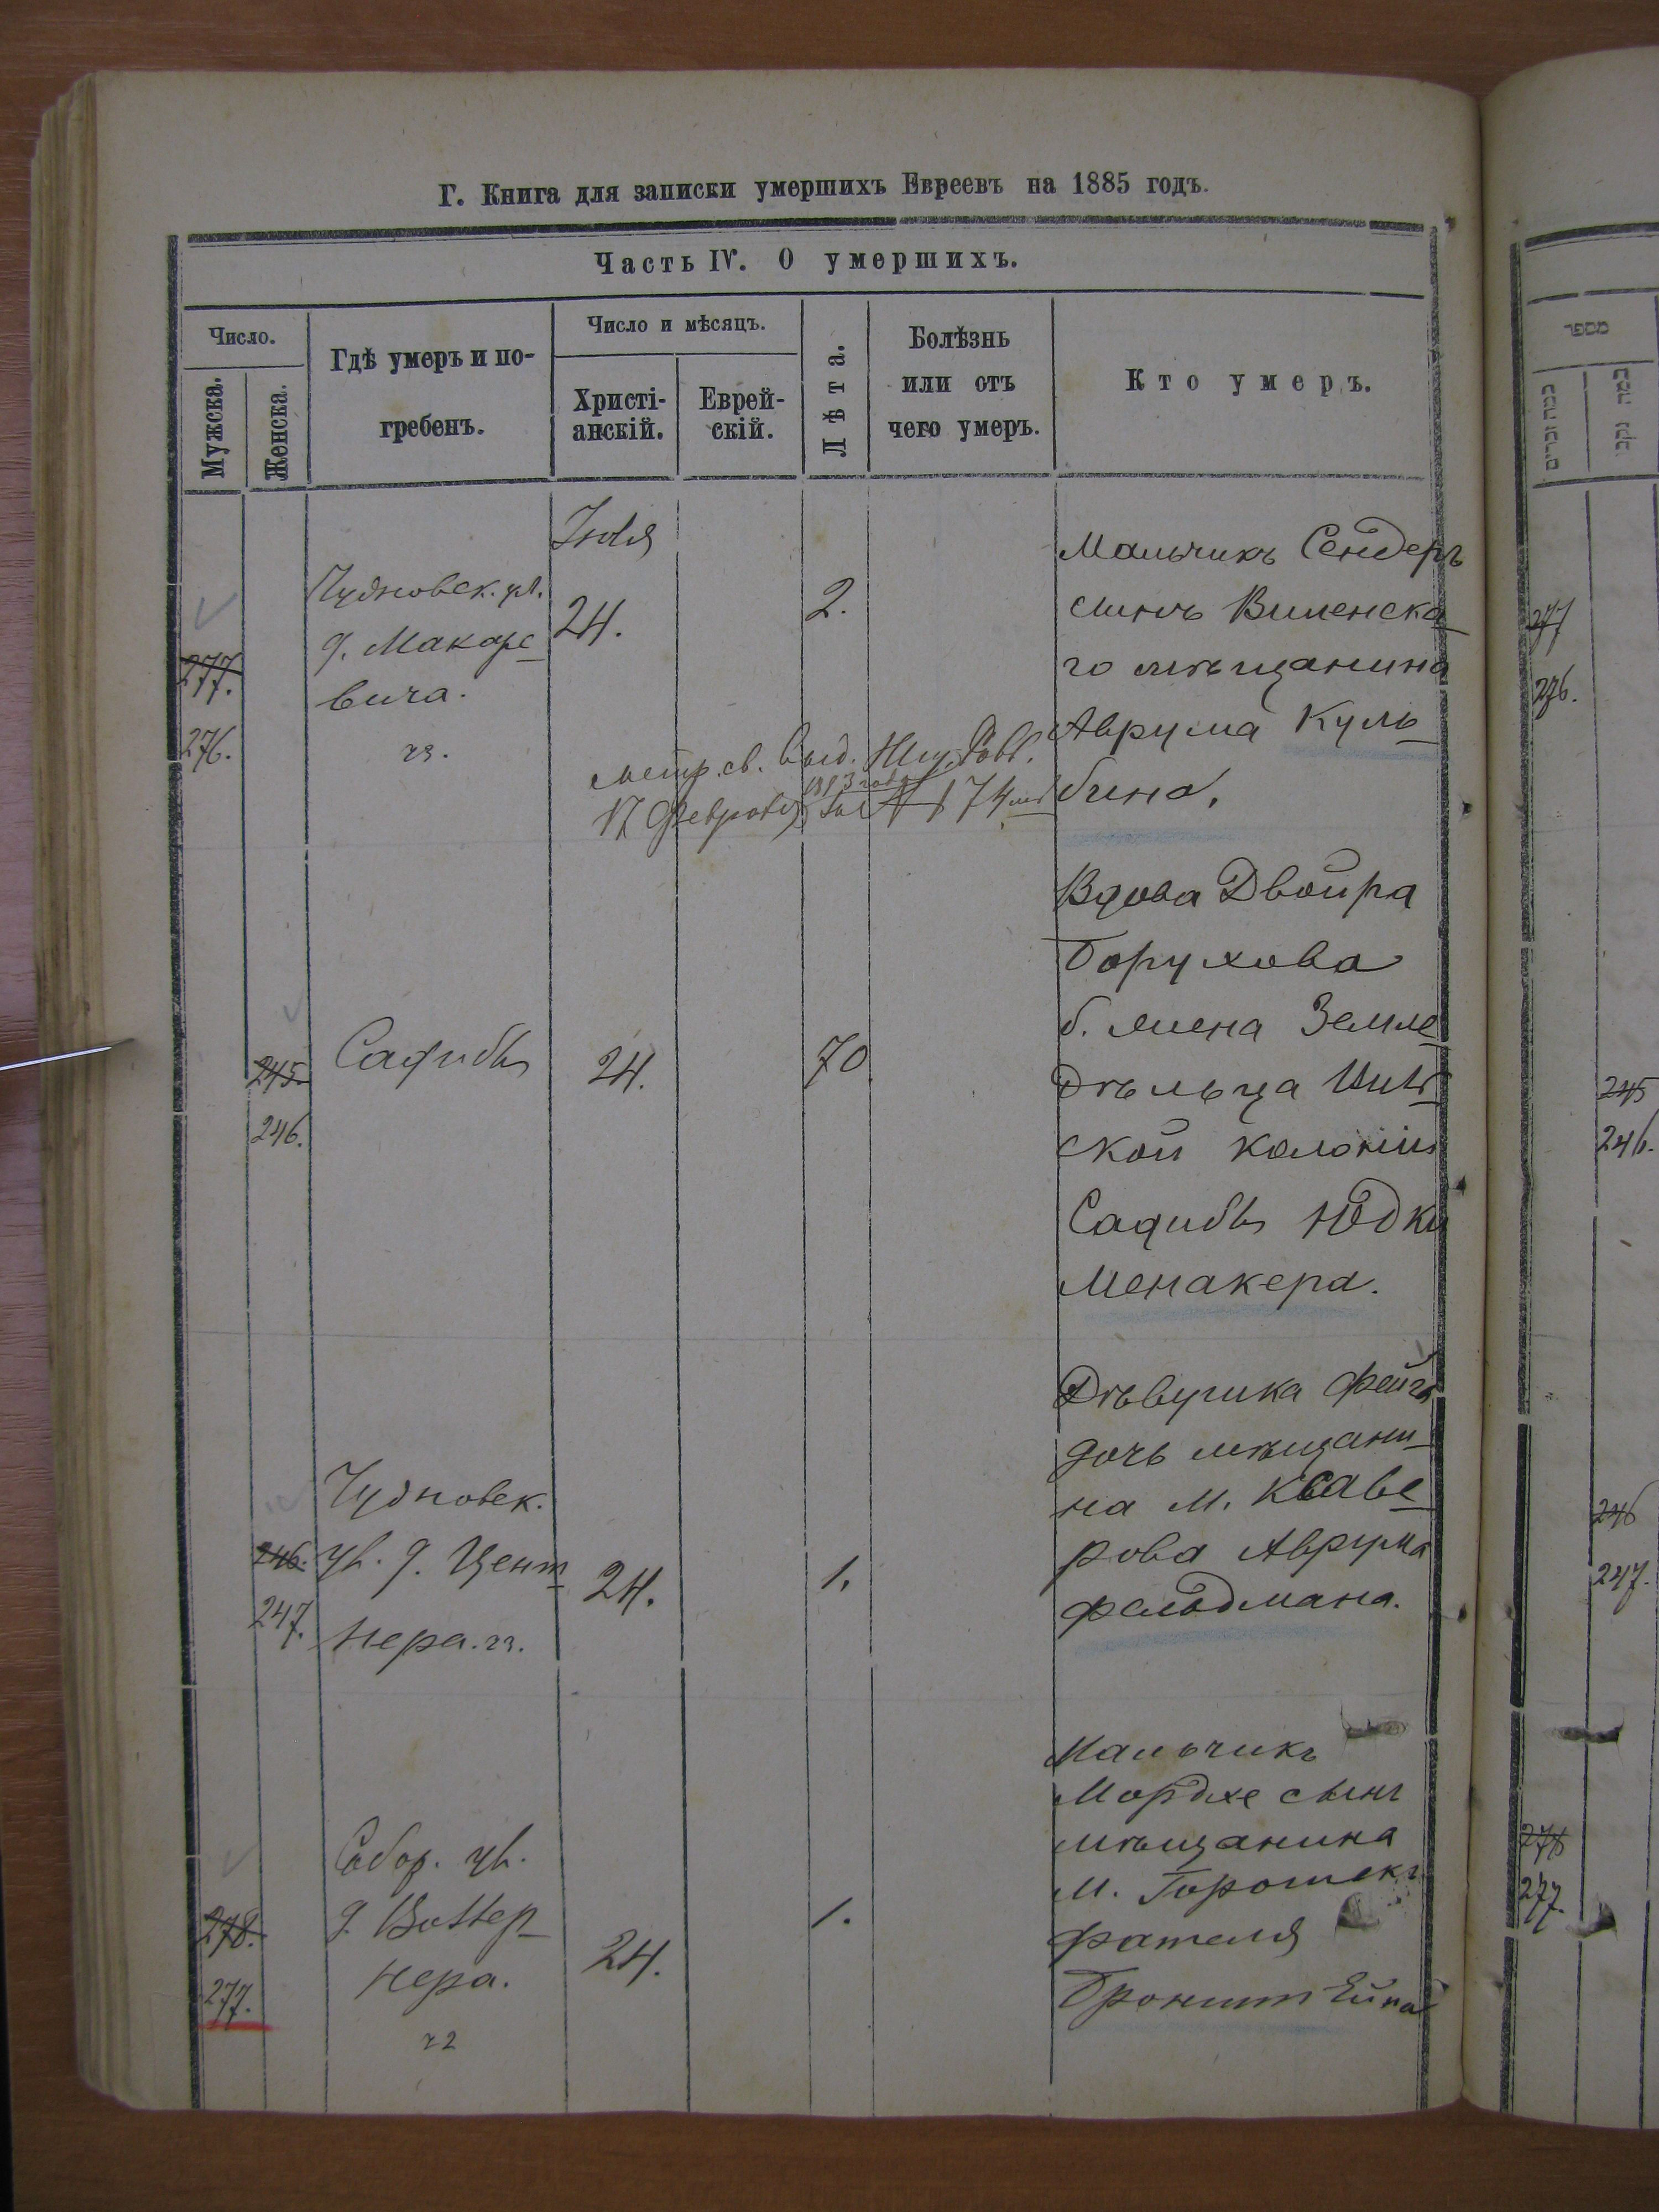 Г. Книга для записки умершихъ Евреевъ на 1885 годъ.
Часть IV. О умершихъ.
Число.
Мужска.
Женска.
Гдѣ умеръ и по-
гребенъ.
Число и мѣсяцъ.
Христі-
анскій.
Еврей-
скій.
Лѣта.
Болѣзнь
или отъ
чего умеръ.
Кто умеръ.
277.
276.
Чудновск. ул.
д. Макаре
вича.
Іюля
24.
2.
Мальчикъ Сендеръ
сынъ Виленска
го мѣщанина
Аврума Куль
бина.
метр. св. выд.
17 Февраля
1893 года
174
245.
246.
Садибы
24.
70
Вдова Двойра
Борухова
б. жена Земле
дѣльца
ской колоніи
Садибы Юдки
Менакера.
246.
247.
Чудновск.
ул. д. Цент
нера. ч3.
24.
1.
Дѣвушка Фейга
дочь мѣщани
на м. Ксаве
рова Аврума
Фельдмана.
278.
277.
Собор. ул.
д.
нера.
ч2
24.
1.
Мальчикъ
Мордхе сынъ
мѣщанина
м. Горошекъ
Фателя
מספר
277
276.
245
246.
246
247.
278
277.